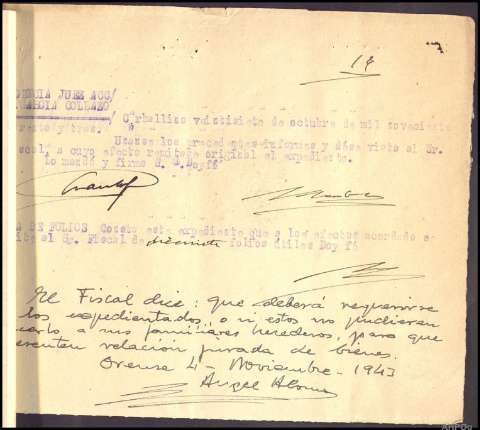 14
JUEZ ACC/
GARCIA COLLAZO
/ Carballino veintisiete de octubre de mil novecientos
renta y tres.
Unanse los precedentes informes y dése vista al Sr.
cal, a cuyo efecto remítase original el expediente.
Lo mandó y firma S. S. Doy fé
DE FOLIOS Consta este expediente que a los efectos acordado se
ite al Sr. Fiscal de diecisiete folios útiles Doy fé
El Fiscal dice: que deberá requerirse
los expedientados, o si estos no pudieran
cerlo a sus familiares herederos, para que
esenten relación jurada de bienes.
Orense 4 - Noviembre - 1943
Angel